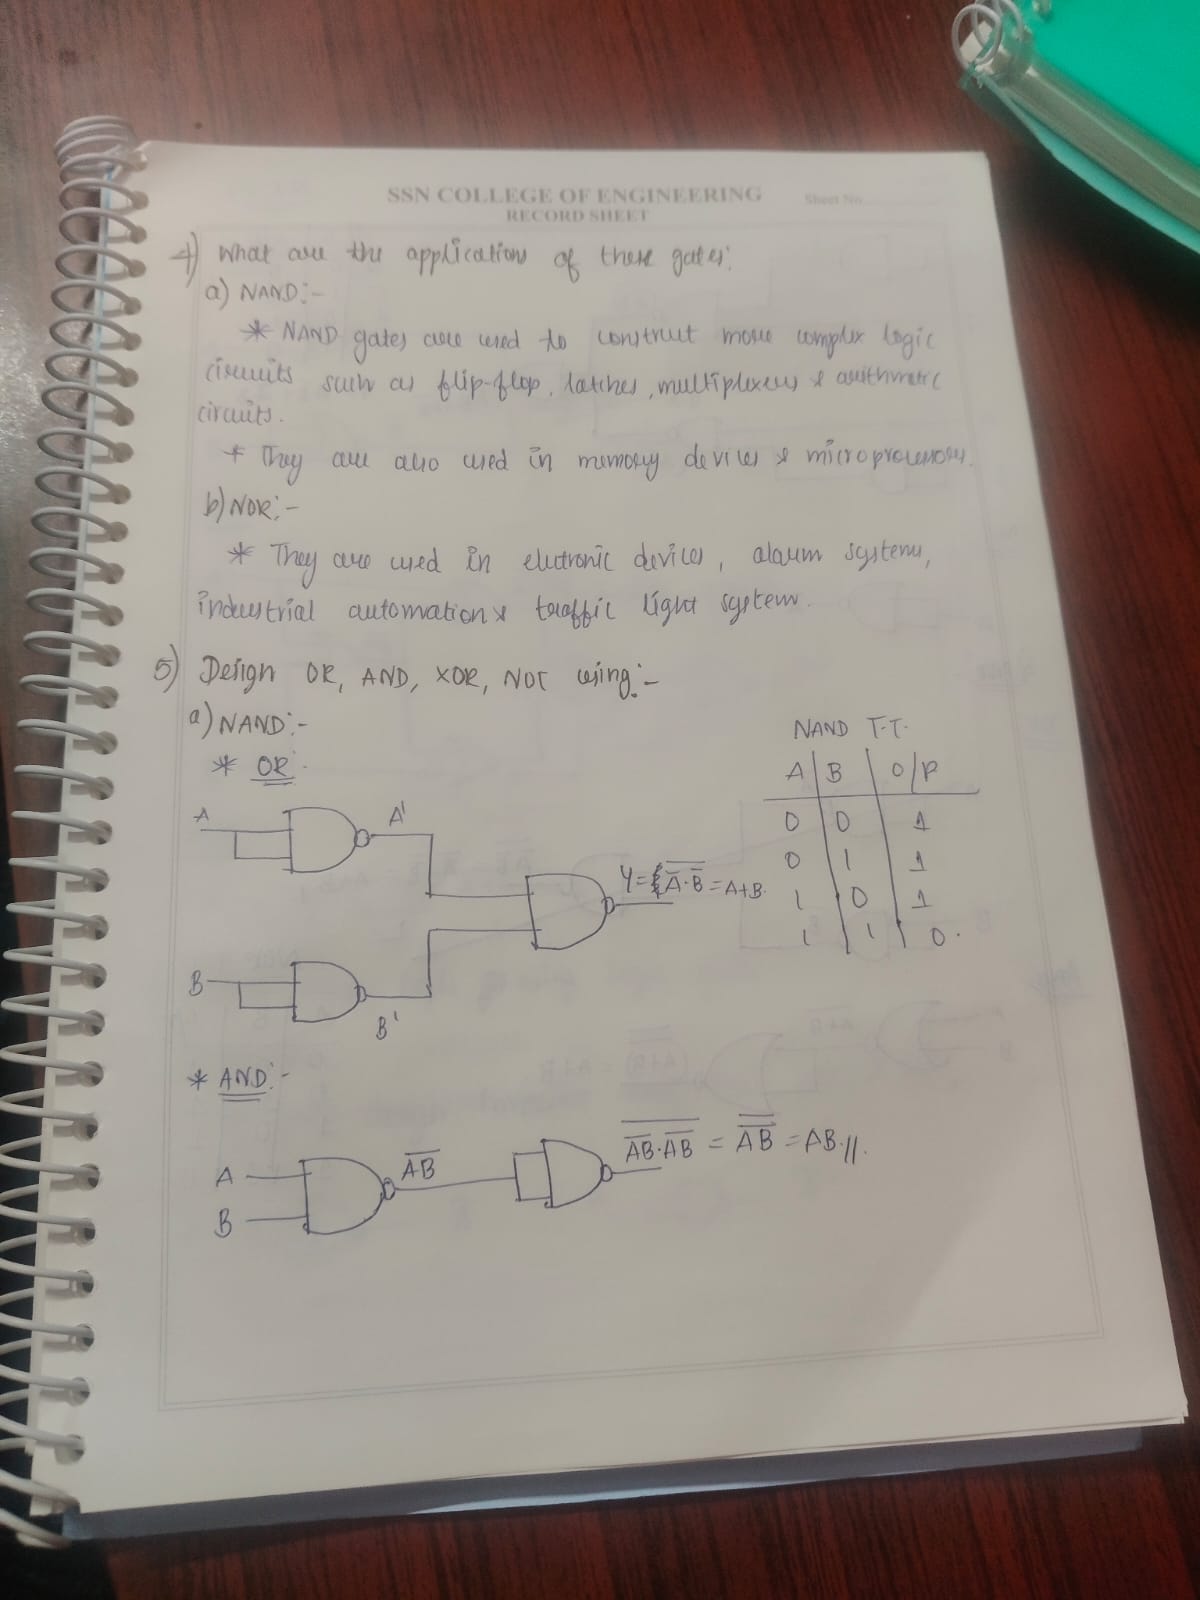 SSN COLLEGE OF ENGINEERING
Sheet No.
RECORD SHEET
4) What are the applications of these gates:
a) NAND:-
* NAND gates are used to construct more complex logic
circuits such as flip-flop, latches, multiplexers & arithmetic
circuits.
* They are also used in memory devices & microprocessors.
b) NOR:-
* They are used in electronic devices, alarm systems,
industrial automation & traffic light system.
5) Design OR, AND, XOR, NOT using:-
a) NAND:-
* OR:
NAND T.T.
A B O/P
0 0 1
0 1 1
1 0 1
1 1 0.
A
A'
Y = \overline{\overline{A}·\overline{B}} = A+B.
B
B'
* AND:-
A
B
\overline{AB}
\overline{\overline{AB}·\overline{AB}} = \overline{\overline{AB}} = AB.//.